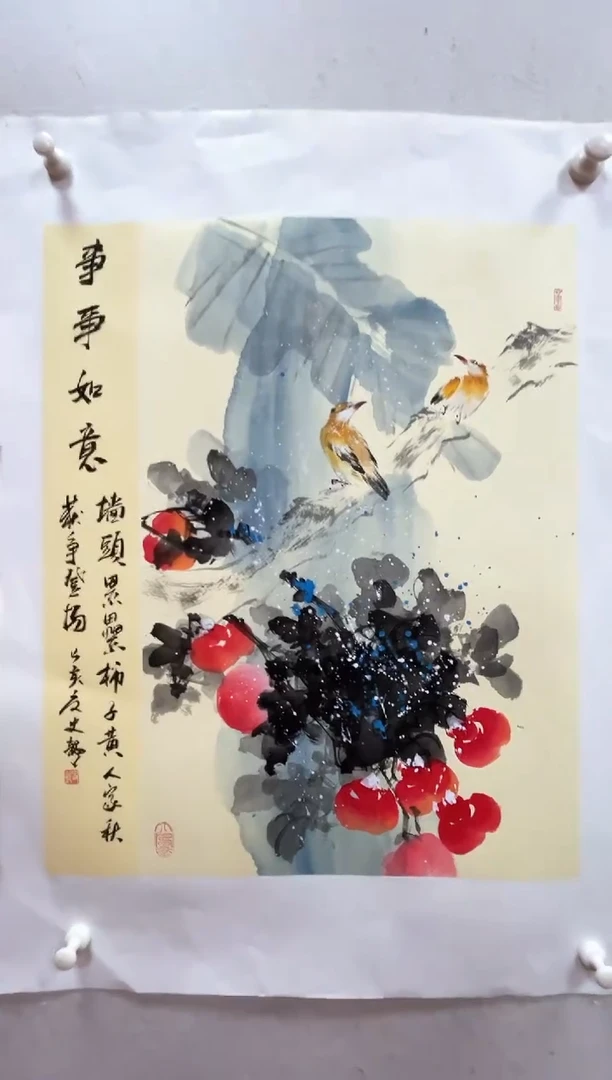 事事如意
墙頭累累柿子黄人家秋
获争登场 己亥夏史